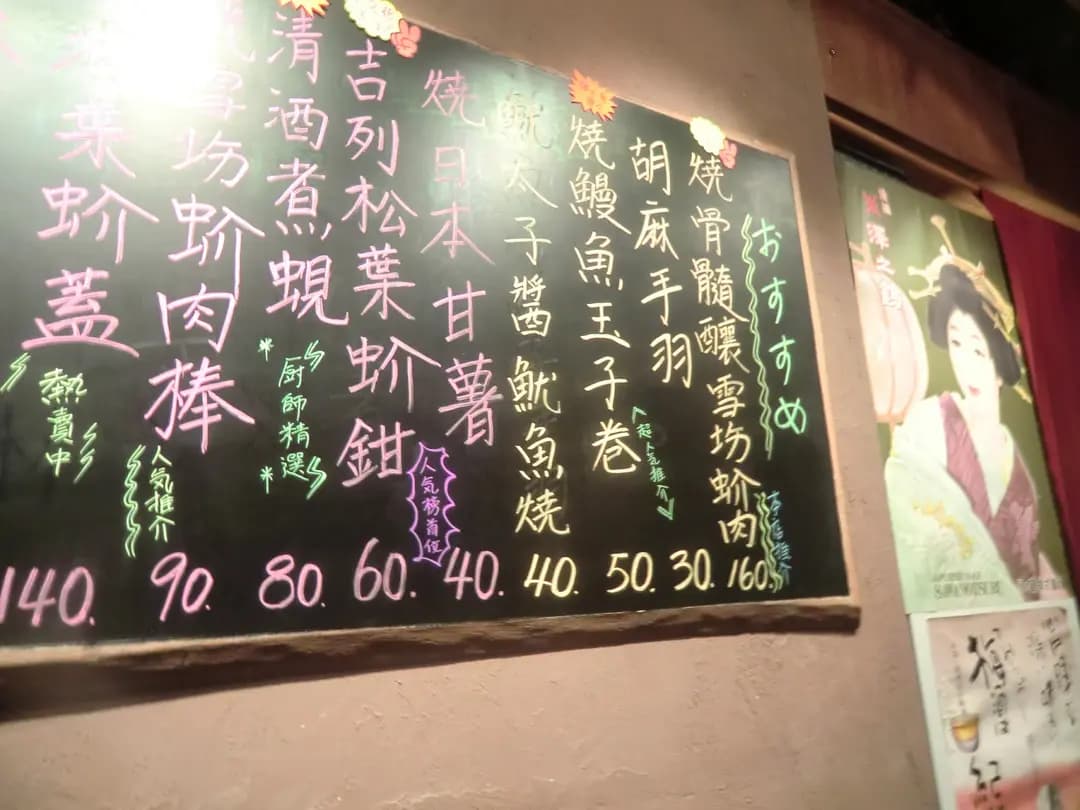 おすすめ
燒骨髓釀雪场蚧肉
本店推介
160.
胡麻手羽
30.
燒鰻魚玉子卷
超人気推介
50.
太子醬魷魚燒
40.
燒日本甘薯
40.
吉列松葉蚧鉗
人気榜首位
60.
清酒煮蜆
厨師精選
80.
雪场蚧肉棒
人気推介
90.
葉蚧蓋
熱賣中
140.
澤之鶴